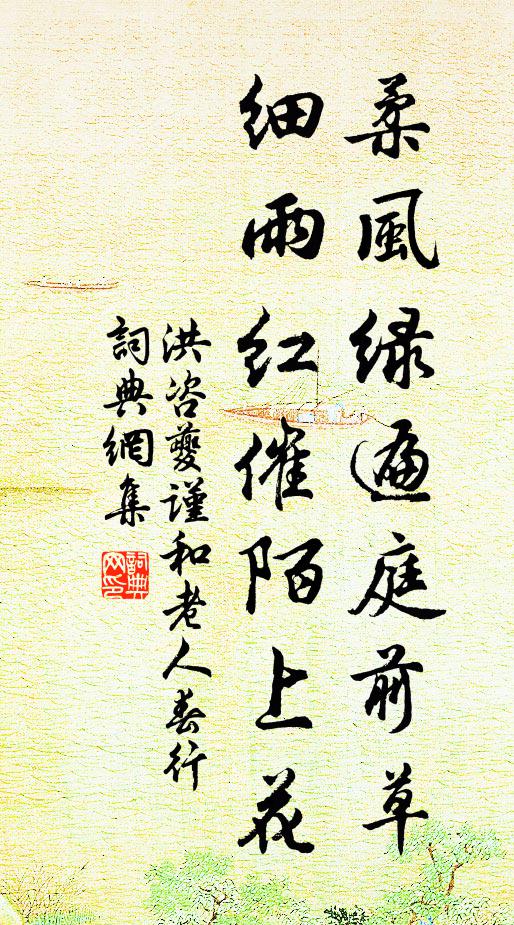 柔風綠遍庭前草
細雨紅催陌上花
洪咨夔謹和老人春行
詞典網集
詞典网印